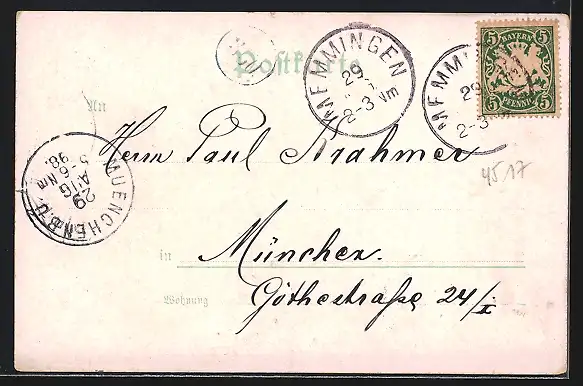 Postkarte
BAYERN
5 5
5 PFENNIG 5
MEMMINGEN
29
2-3 Nm
MEMMI
29
2-3
An
Herrn Paul Krahmer
4517
MUENCHEN B.Z.
29
AUG
5-6 Nm
98.
in München.
Wohnung Göthestraße 24/I